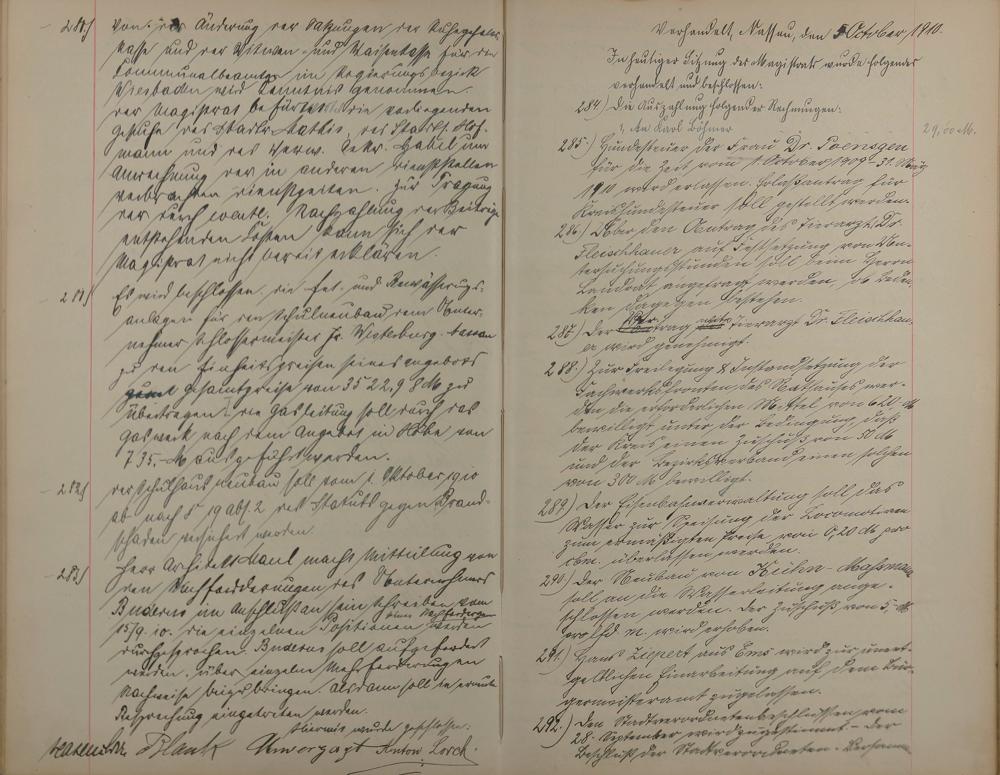 280) Von der Änderung der Satzungen der Ruhegehalts-
kasse und der Witwen- und Waisenkasse für den
Kommunalbeamten im Regierungsbezirk
Wiesbaden wird Kenntnis genommen.
Der Magistrat befürwortet die vorliegenden
Gesuche des Stadtr. Mathis, des Stadts. Hof-
mann und des Verw. Sekr. Gabel um
Anrechnung der in anderen Dienststellen
verbrachten Dienstzeiten. Zur Tragung
der durch eventl. Nachzahlung der Beiträge
entstehenden Kosten kann sich der
Magistrat nicht bereit erklären.
281) Es wird beschlossen, die Be- und Entwässerungs-
anlagen für den Schulneubau dem Unter-
nehmer Schlossermeister Fr. Westerburg Nassau
zu den Einheitspreisen seines Angebots
Gesamtpreise von 3522,98 M zu
übertragen. Die Gasleitung soll durch das
Gaswerk nach dem Angebot in Höhe von
735.- M ausgeführt werden.
282) Der Schulhausneubau soll vom 1. Oktober 1910
ab nach § 19 Abs. 2 des Statuts gegen Brand-
schaden versichert werden.
283) Herr Architekt Maul macht Mitteilung von
den Mehrforderungen des Unternehmers
Buderus im Anschluß an sein Schreiben vom
15/9. 10. Die einzelnen Positionen werden
durchgesprochen. Buderus soll aufgefordert
werden, über einzelne Mehrforderungen
Nachweise beizubringen. Alsdann soll in erneute
Besprechung eingetreten werden.
Hiermit wurde geschlossen.
Hasenclever Plank Anton Lorch.
Verhandelt, Nassau, den 5 October 1910.
In heutiger Sitzung des Magistrats wurde folgendes
verhandelt und beschlossen:
284.) Die Auszahlung folgender Rechnungen:
1, An Karl Böhmer 29,00 M.
285.) Hundesteuer der Frau Dr. Poensgen
für die Zeit vom 1. October 1909 - 31. März
1910 wird erlassen. Erlaßantrag für
Kreishundesteuer soll gestellt werden.
286.) Über den Antrag des Tierarzt Dr.
Fleischhauer auf Festsetzung von Un-
tersuchungsstunden soll beim Herrn
Landrat angefragt werden, ob Beden-
ken dagegen bestehen.
287.) Der Vertrag mit Tierarzt Dr. Fleischhau-
er wird genehmigt.
288.) Zur Freilegung & Instandsetzung der
Fachwerksfronten des Rathauses wer-
den die erforderlichen Mittel von 620 M
bewilligt unter der Bedingung, daß
der Kreis einen Zuschuß von 50 M
und der Bezirksverband einen solchen
von 300 M bewilligt.
289.) Der Eisenbahnverwaltung soll das
Wasser zur Speisung der Locomotiven
zum ermäßigten Preise von 0,20 M pro
cbm. überlassen werden.
290.) Der Neubau von Keiher-Mahsmann
soll an die Wasserleitung ange-
schlossen werden. Der Zuschuß von 5,- M
pro lfd. m. wird erhoben.
291.) Hans Ziepert aus Ems wird zur unent-
geltlichen Einarbeitung auf dem Bür-
germeisteramt zugelassen.
292.) Den Stadtverordnetenbeschlüssen vom
28. September wird zugestimmt - der
Beschluß der Stadtverordneten-Versamm